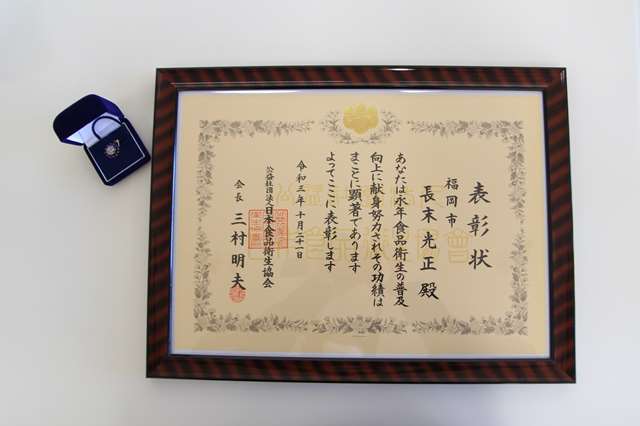 表彰状
福岡市
長末光正殿
あなたは永年食品衛生の普及
向上に献身努力されその功績は
まことに顕著であります
よってここに表彰します
令和三年十月二十一日
公益社団法人日本食品衛生協会
会長 三村明夫